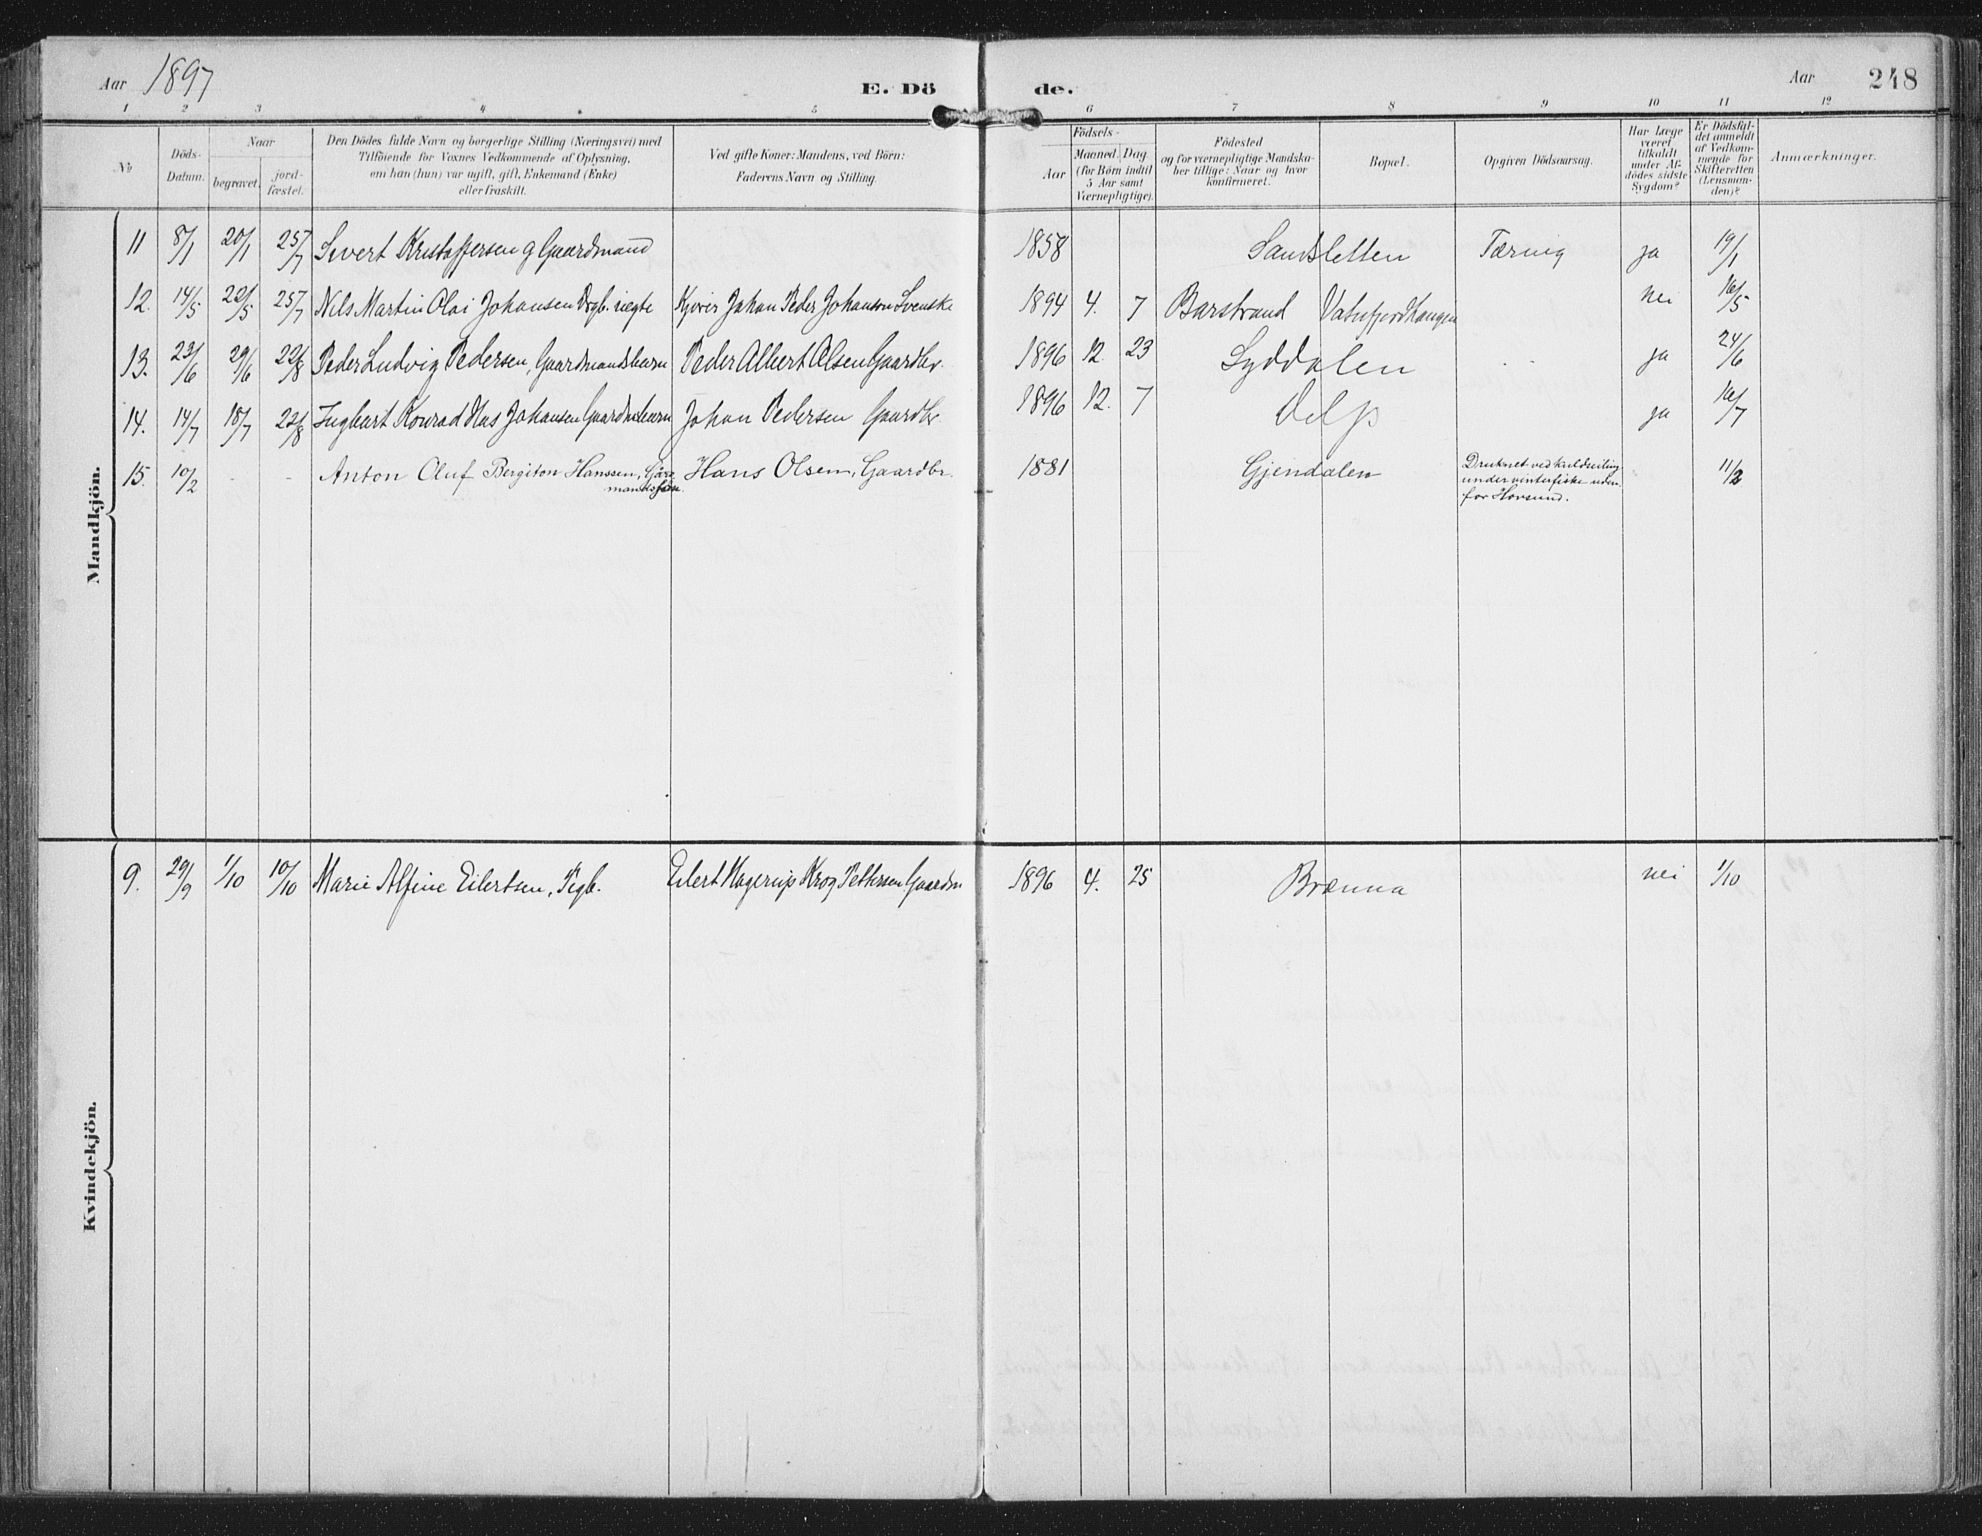 Aar 1897 E. Dö de. Aar 248
1 2 3 4 5 6 7 8 9 10 11 12
No
Döds-Datum.
Naar
begravet.
jord-fæstet.
Den Dödes fulde Navn og borgerlige Stilling (Næringsvei) med
Tilföiende for Voxnes Vedkommende af Oplysning,
om han (hun) var ugift, gift, Enkemand (Enke)
eller fraskilt.
Ved gifte Koner: Mandens, ved Börn:
Faderens Navn og Stilling.
Födsels-
Aar
Maaned. Dag.
(for Börn indtil
5 Aar samt
Værnepligtige).
Födested
og for værnepligtige Mandska-
ber tillige: Naar og hvor
konfirmeret.
Bopæl.
Opgiven Dödsaarsag.
Har Læge
været
tilkaldt
under Af-
dödes sidste
Sygdom?
Er Dödsfal-
det anmeldt
af Vedkom-
mende for
Skifteretten
(Lensman-
den)?
Anmærkninger.
Mandkjön.
11 8/1 20/1 25/7 Sivert Kristoffersen g Gaardmand 1858 Sandsletten Tæring ja 19/1
12. 14/5 22/5 25/7 Nils Martin Olai Johansen Drgb. uegte Kjører Johan Peder Johanson Svenske 1894 4. 7 Barstrand Vatnfjord nei 16/5
13. 23/6 29/6 22/8 Peder Ludvig Pedersen, Gaardmandsbarn Peder Albert Olsen Gaardbr. 1896 12 23 Lyddalen ja 24/6
14. 14/7 18/7 22/8 Ingbart Konrad Johansen Johan Pedersen Gaardbr. 1896 12. 7 Delp ja 16/7
15. 10/2 - - Anton Oluf Bergiton Hanssen, Gård
mandssøn. Hans Olsen, Gaardbr. 1881 Gjendalen Druknet ved kuldseiling
under vinterfiske uden-
for Hovsund. 11/2
Kvindekjön.
9. 29/9 1/10 10/10 Marie Alfine Eilertsen, Pigb. Eilert Hagerup Krog Pettersen Gaardm 1896 4. 25 Brænna nei 1/10